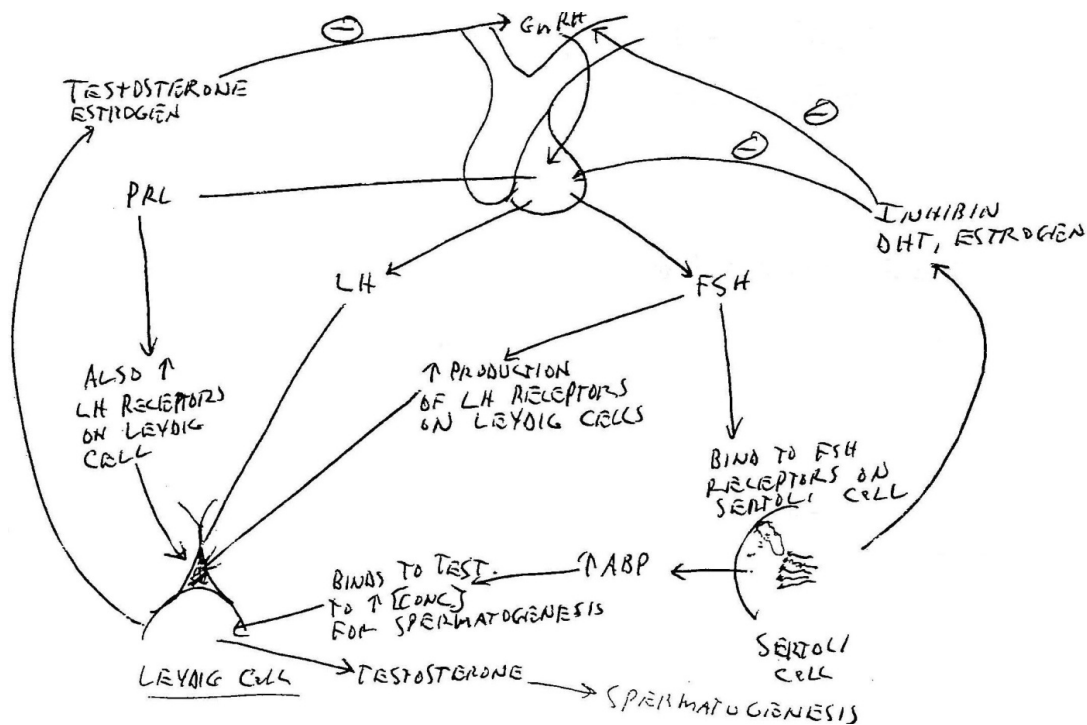 ⊖
GnRH
TESTOSTERONE
ESTROGEN
⊖
⊖
PRL
INHIBIN
DHT, ESTROGEN
LH
FSH
ALSO ↑
LH RECEPTORS
ON LEYDIG
CELL
↑ PRODUCTION
OF LH RECEPTORS
ON LEYDIG CELLS
BIND TO FSH
RECEPTORS ON
SERTOLI CELL
BINDS TO TEST.
TO ↑ [CONC]
FOR SPERMATOGENESIS
↑ ABP
SERTOLI
CELL
LEYDIG CELL
TESTOSTERONE
SPERMATOGENESIS